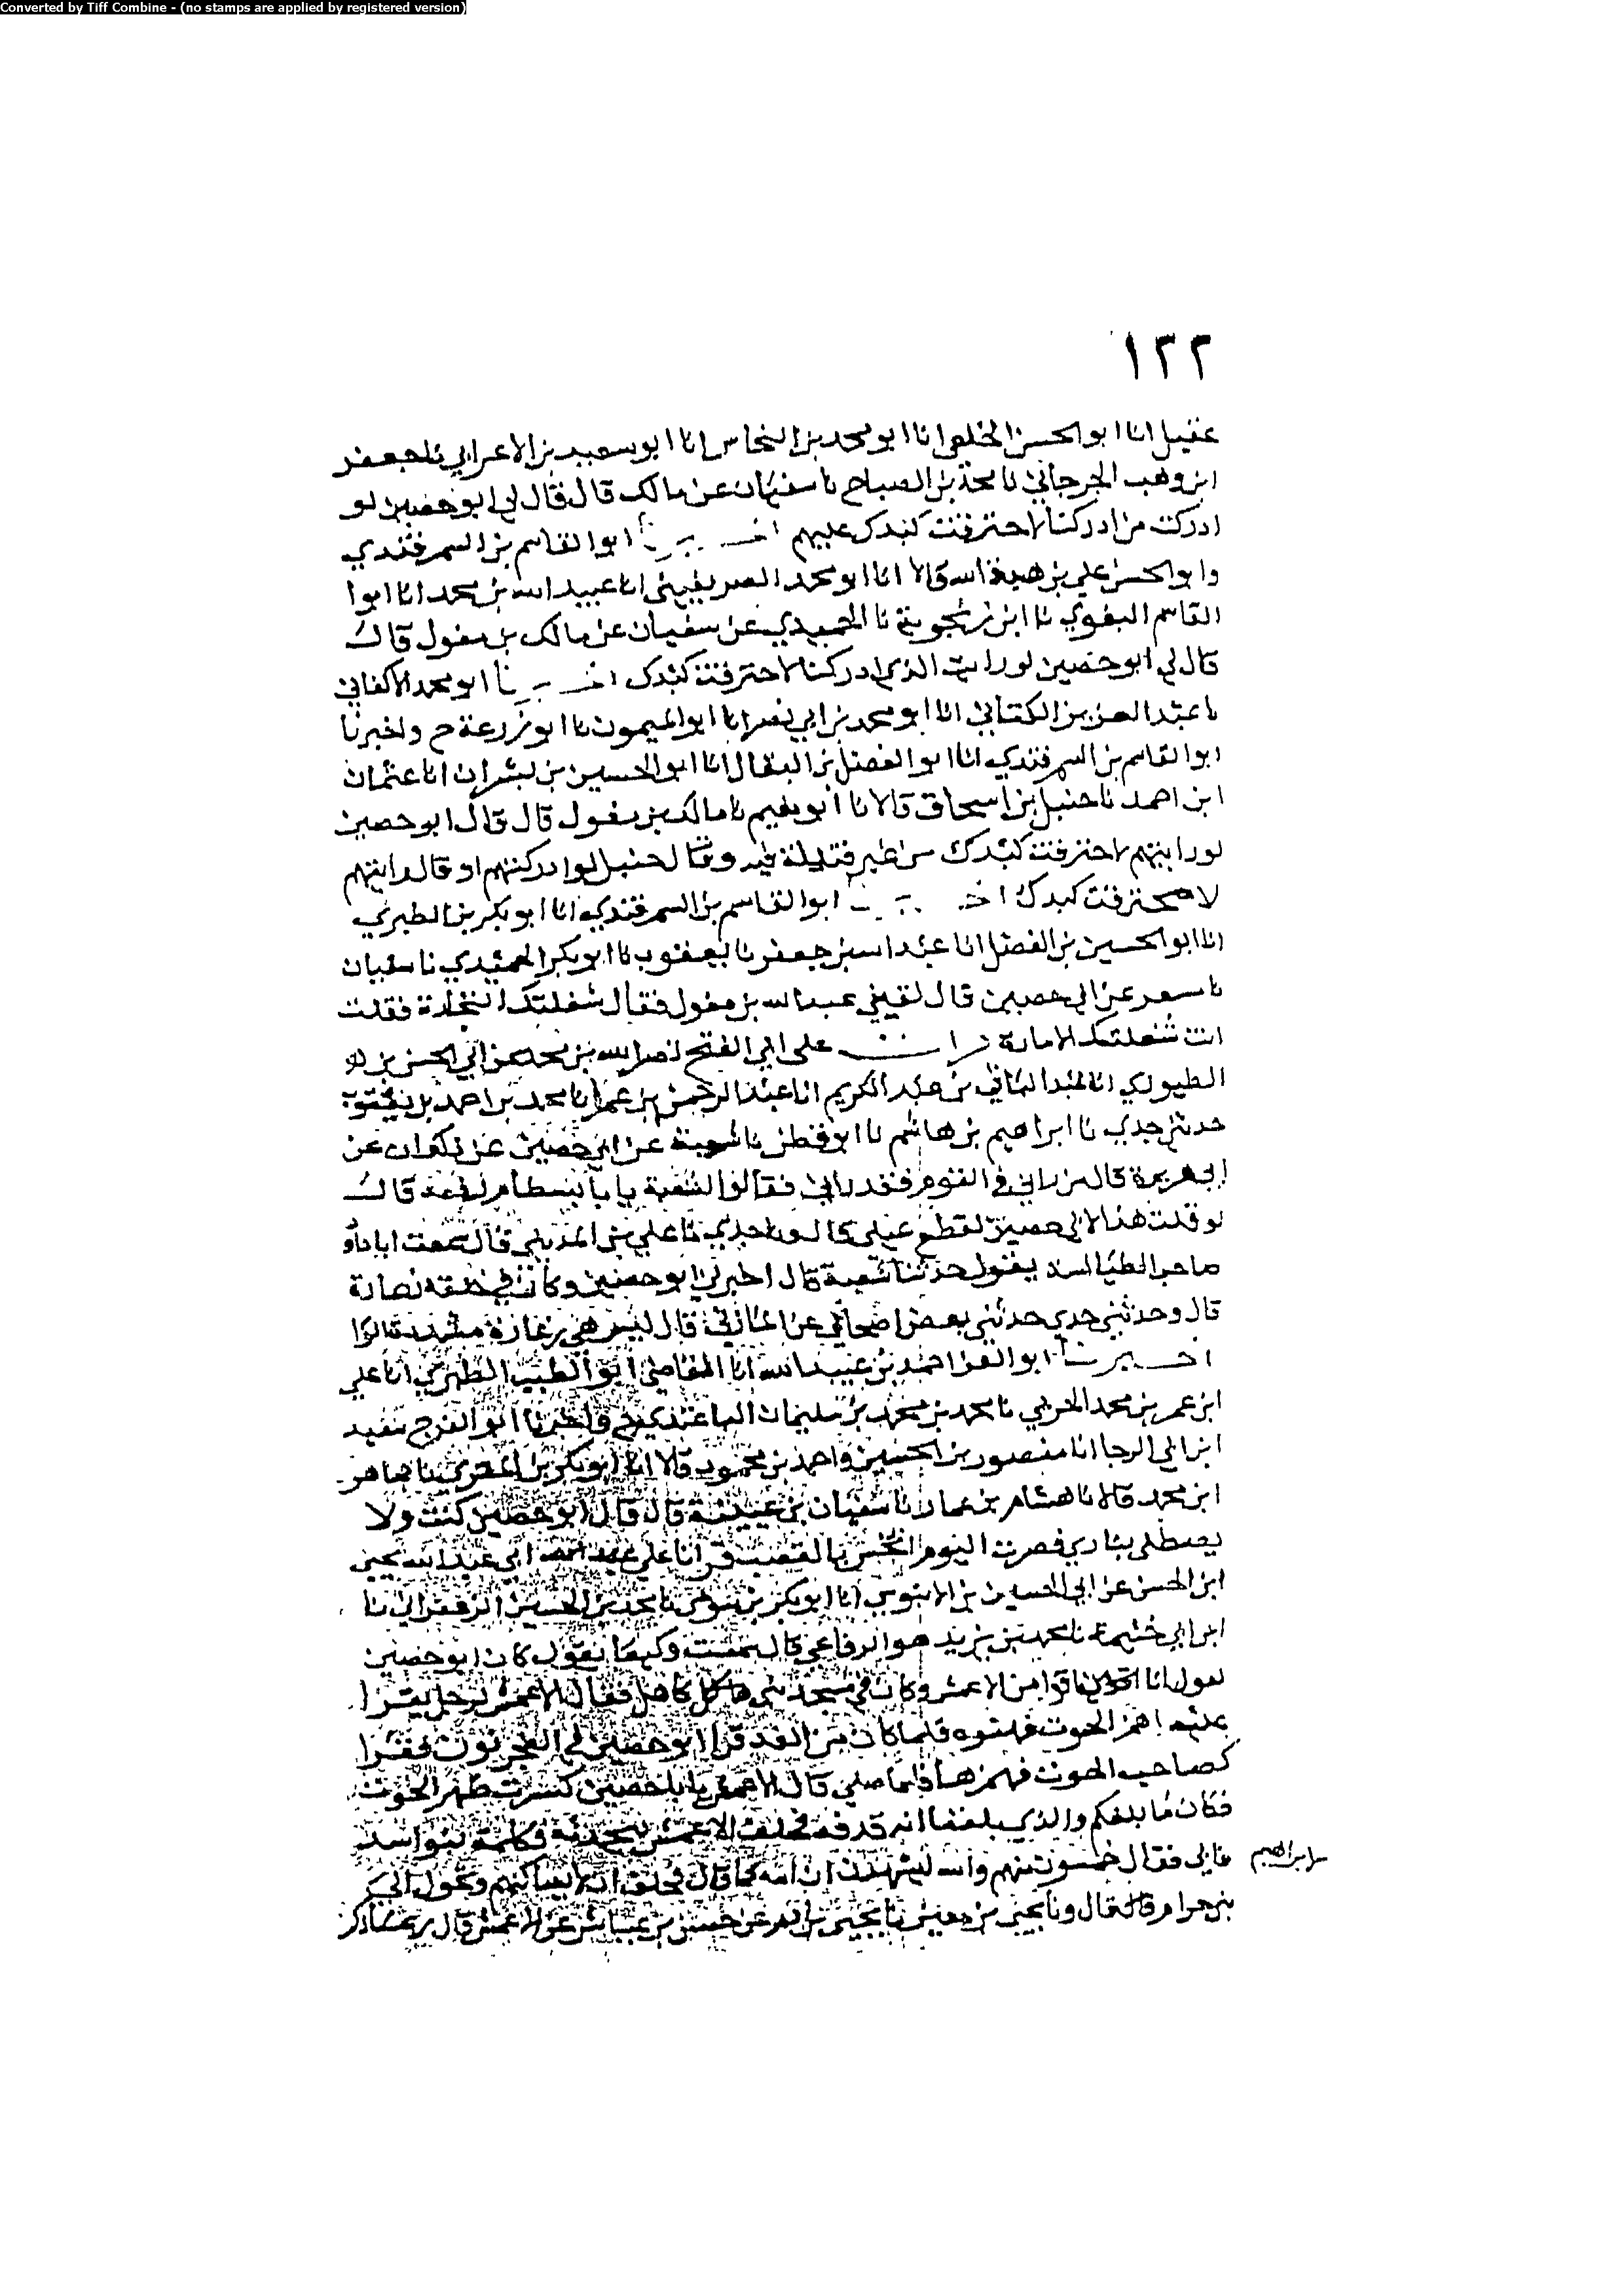 Converted by Tiff Combine - (no stamps are applied by registered version)
١٢٢
عقيل انا ابو الحسن الخلعي انا ابو محمد بن النحاس انا ابو سعيد بن الاعرابي نا جعفر
ابن وهب الجرجاني نا محمد بن الصباح نا سفيان عن مالك قال قال لي ابو حصين لو
ادركت من ادركنا لاحترقت كبدك عليهم اخبرنا ابوا القاسم بن السمرقندي
وابو الحسن علي بن هبة الله قالا انا ابو محمد الصريفيني انا عبيد الله بن محمد انا ابوا
القاسم البغوي نا ابن زنجويه نا الحميدي عن سفيان عن مالك بن مغول قال
قال لي ابو حصين لو رايت الذي ادركنا لاحترقت كبدك اخبرنا ابو محمد الاكفاني
نا عبد العزيز الكتاني انا ابو محمد بن ابي نصر انا ابو الميمون نا ابو زرعة ح واخبرنا
ابوا القاسم بن السمرقندي انا ابوا الفضل بن البقال انا ابو الحسين بن بشران انا عثمان
ابن احمد نا حنبل بن اسحاق قالا نا ابو نعيم نا مالك بن مغول قال قال ابو حصين
لو رايتهم لاحترقت كبدك وقال حنبل لو ادركتهم او قال رايتهم
لاحترقت كبدك اخبرنا ابوا القاسم بن السمرقندي انا ابو بكر بن الطبري
انا ابو الحسين بن الفضل انا عبد الله بن جعفر نا يعقوب نا ابو بكر الحميدي نا سفيان
نا مسعر عن ابي حصين قال لقيني عبد الله بن مغول فقال شغلتك التجارة فقلت
انت شغلتك الامارة قرات على ابي الفتح نصر الله بن محمد عن ابي الحسن بن
الطيوري انا عبد الباقي بن عبد الكريم انا عبد الرحمن بن عمر انا محمد بن احمد بن يعقوب
حدثني جدي نا ابراهيم بن هاشم نا ابو قطن نا شعبة عن ابي حصين عن ذكوان عن
ابي هريرة قال من راني في النوم فقد راني فقالوا لشعبة يا ابا بسطام قال
لو قلت هذا لابي حصين لقطع جدي نا علي بن المديني قال سمعت ابا داود
صاحب الطيالسة يقول حدثنا شعبة قال اخبرني ابو حصين وكان في خلقه
قال وحدثني جدي حدثني بعض اصحابي عن قال
اخبرنا ابو العز احمد بن عبيد الله انا القاضي ابو الطيب الطبري انا علي
ابن عمر بن محمد الحربي نا محمد بن محمد بن سليمان الباغندي ح واخبرنا ابو الفرج سعيد
ابن ابي الرجا انا منصور بن الحسين واحمد بن محمود قالا انا ابو بكر بن المقري نا جماهر
ابن محمد قالا نا هشام بن عمار نا سفيان بن عيينة قال قال ابو حصين كنت ولا
يصطلي بناري فصرت اليوم بالقضيب قرانا على ابي عبد الله يحيى
ابن الحسن عن ابي الحسين بن الابنوسي انا ابو بكر بن نا محمد بن الحسين الزعفراني نا
ابن ابي خثيمة نا محمد بن يزيد هو الرفاعي قال سمعت وكيعا يقول كان ابو حصين
يقول انا اقرا من الاعمش وكان في مسجد بني كاهل فقال الاعمش لرجل يقرا
عليه اهمز الحوت فهمزه فلما كان من الغد قرا ابو حصين في الفجر نون فقرا
كصاحب الحوت فهمزها فلما صلى قال الاعمش يا ابا حصين كسرت ظهر الحوت
فكان ما بلغكم والذي بلغنا انه قذفه فحلف الاعمش ليحدنه فكلمه بنو اسد
فابى فقال خمسون منهم والله ليشهدن ان امه كما قال فحلف ان لا يساكنهم وتحول الى
بني حرام قال وقال ونا يحيى بن معين نا يحيى بن ادم عن حسن بن عياش عن الاعمش قال